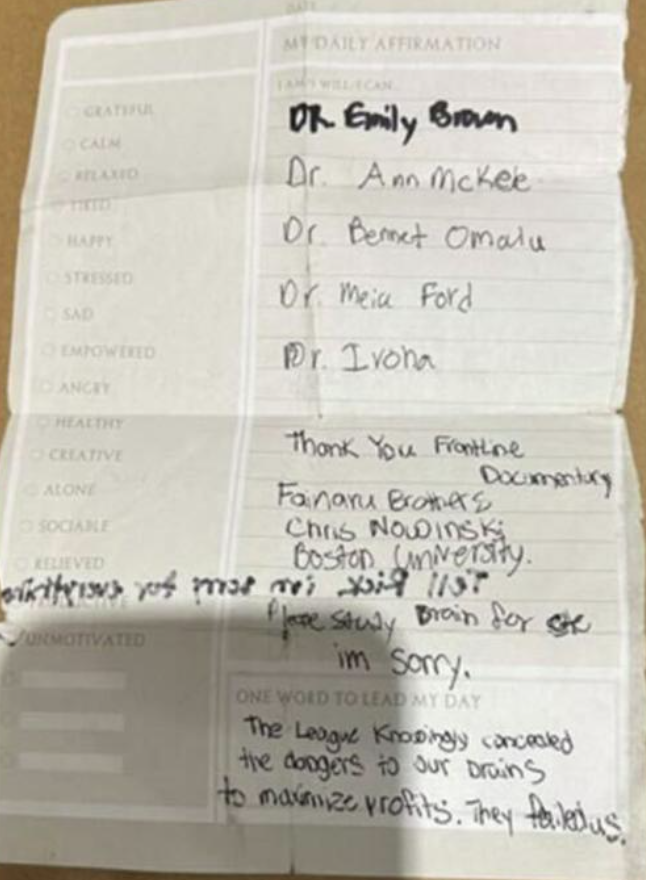 DATE
MY DAILY AFFIRMATION
I AM I WILL I CAN
GRATEFUL
CALM
RELAXED
TIRED
HAPPY
STRESSED
SAD
EMPOWERED
ANGRY
HEALTHY
CREATIVE
ALONE
SOCIABLE
RELIEVED
UNMOTIVATED
DR. Emily Brown
Dr. Ann McKee
Dr. Bennet Omalu
Dr. Meia Ford
Dr. Ivona
Thank You Frontline
Documentary
Fainaru Brothers
Chris Nowinski
Boston University.
Tell Rick im sorry for everything
Please study Brain for
im sorry.
ONE WORD TO LEAD MY DAY
The League Knowingly concealed
the dangers to our brains
to maximize profits. They failed us.